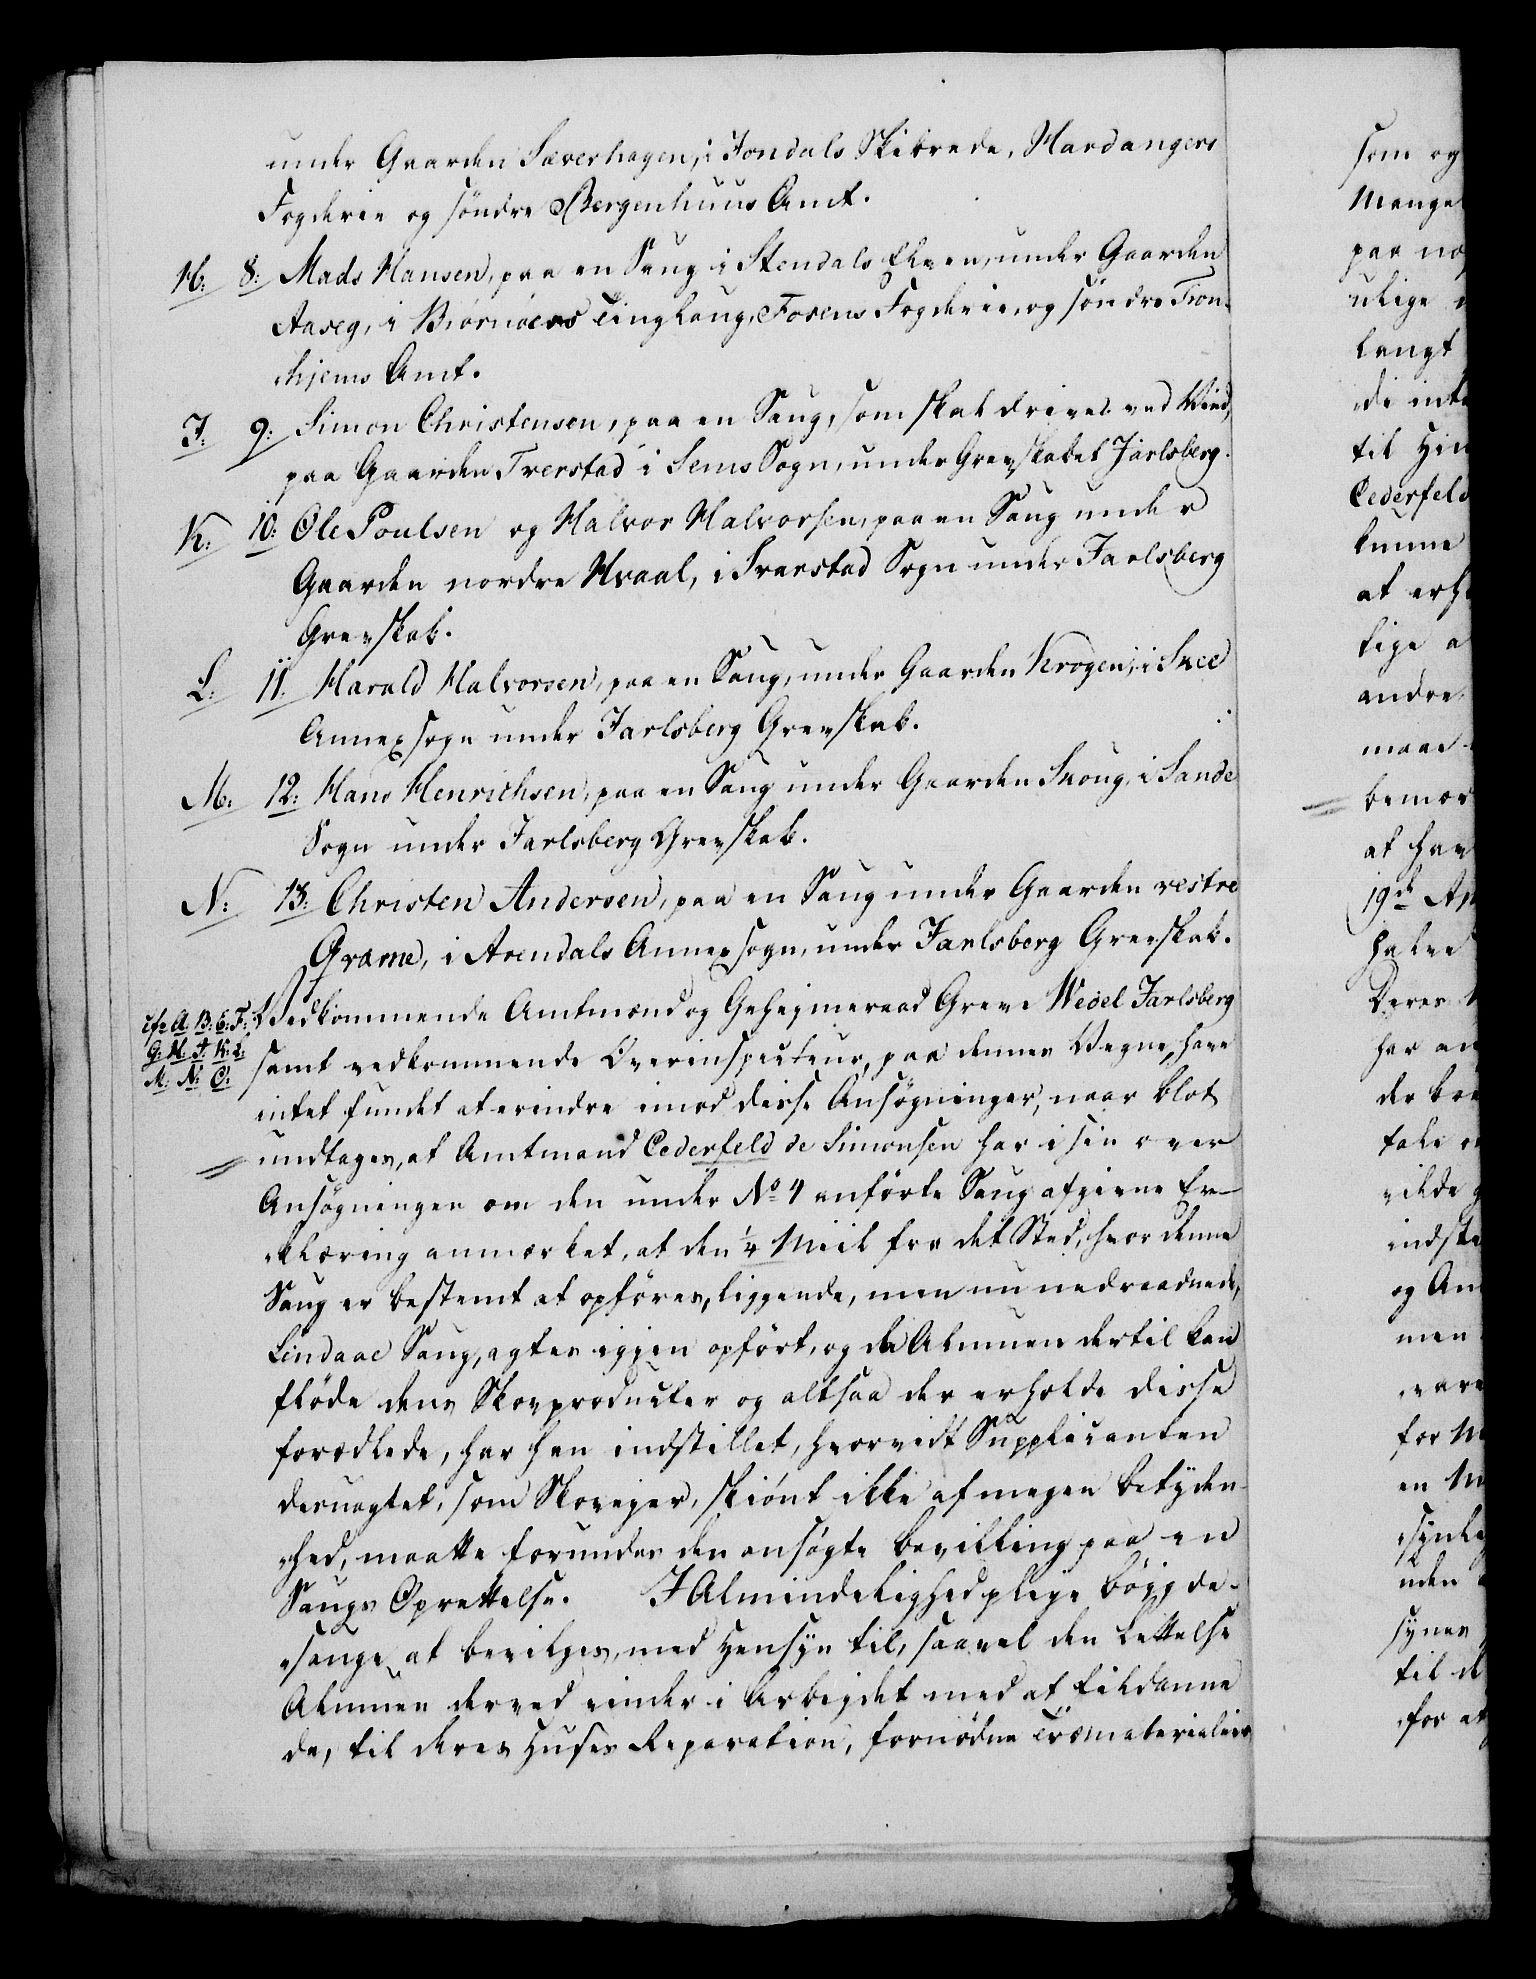 under Gaarden Sæverhagen, i Jondals Skibrede, Hardangers
Fogderie og søndre Bergenhuus Amt.
H: 8: Mads Hansen, paa en Saug i Stendals Elven, under Gaarden
Aaseg, i Biørnøens Tinglaug, Fosens Fogderie, og søndre Tron-
hjems Amt.
I: 9: Simon Christensen, paa en Saug, som skal drives ved Vind,
paa Gaarden Trerstad i Sems Sogn, under Grevskabet Jarlsberg.
K: 10: Ole Poulsen og Halvor Halvorsen, paa en Saug under
Gaarden nordre Hvaal, i Svarstad Sogn under Jarlsberg
Grevskab.
L: 11. Harald Halvorsen, paa en Saug, under Gaarden Krogen, i
Annexsogn under Jarlsberg Grevskab.
M: 12: Hans Henrichsen, paa en Saug under Gaarden Skoug, i Sande
Sogn under Jarlsberg Grevskab.
N: 13: Christen Andersen, paa en Saug under Gaarden vestre
Græme, i Arendals Annexsogn, under Jarlsberg Grevskab.
cfr A. B: 6: F:
G: H: I: K: L:
M: N: O:
Vedkommende Amtmænd og Geheimeraad Greve Wedel Jarlsberg
samt vedkommende Overinspecteur, paa dennes Vegne, have
intet fundet at erindre imod disse Ansøgninger, naar blot
undtages, at Amtmand Cederfeld de Simonsen har i sin over
Ansøgningen om den under No 4 anførte Saug afgivne Er-
klæring anmærket, at den 1/4 Miil fra det Sted, hvor denne
Saug er bestemt at opføres, liggende, men nu nedraadnede,
Lindaae Saug, agtes igjen opført, og da Almuen dertil kan
fløde dens Skovproducter og altsaa der erholde disse
forædlede, har han indstillet, hvorvidt Supplicanten
desuagtet, som Skovejer, skiønt ikke af megen betyden-
hed, maatte forundes den ansøgte bevilling paa en
Saugs Oprettelse. I Almindelighed pleje bøjgde-
sauge at bevilges, med Hensyn til, saavel den Lettelse
Almuen derved vinder i Arbejdet med at tildanne
de, til deres Huses Reparation, fornødne Træmaterialier,
som og
Mange
paa no
ulige
langt
di int
til Hin
Cederfeld
kunne
at erh
lige a
andre
maae
bemær
at hav
19de Ap
halve
Deres
har an
der bev
tale
vilde
indste
og Am
men
være
for
en
synle
uden
synes
til d
for at